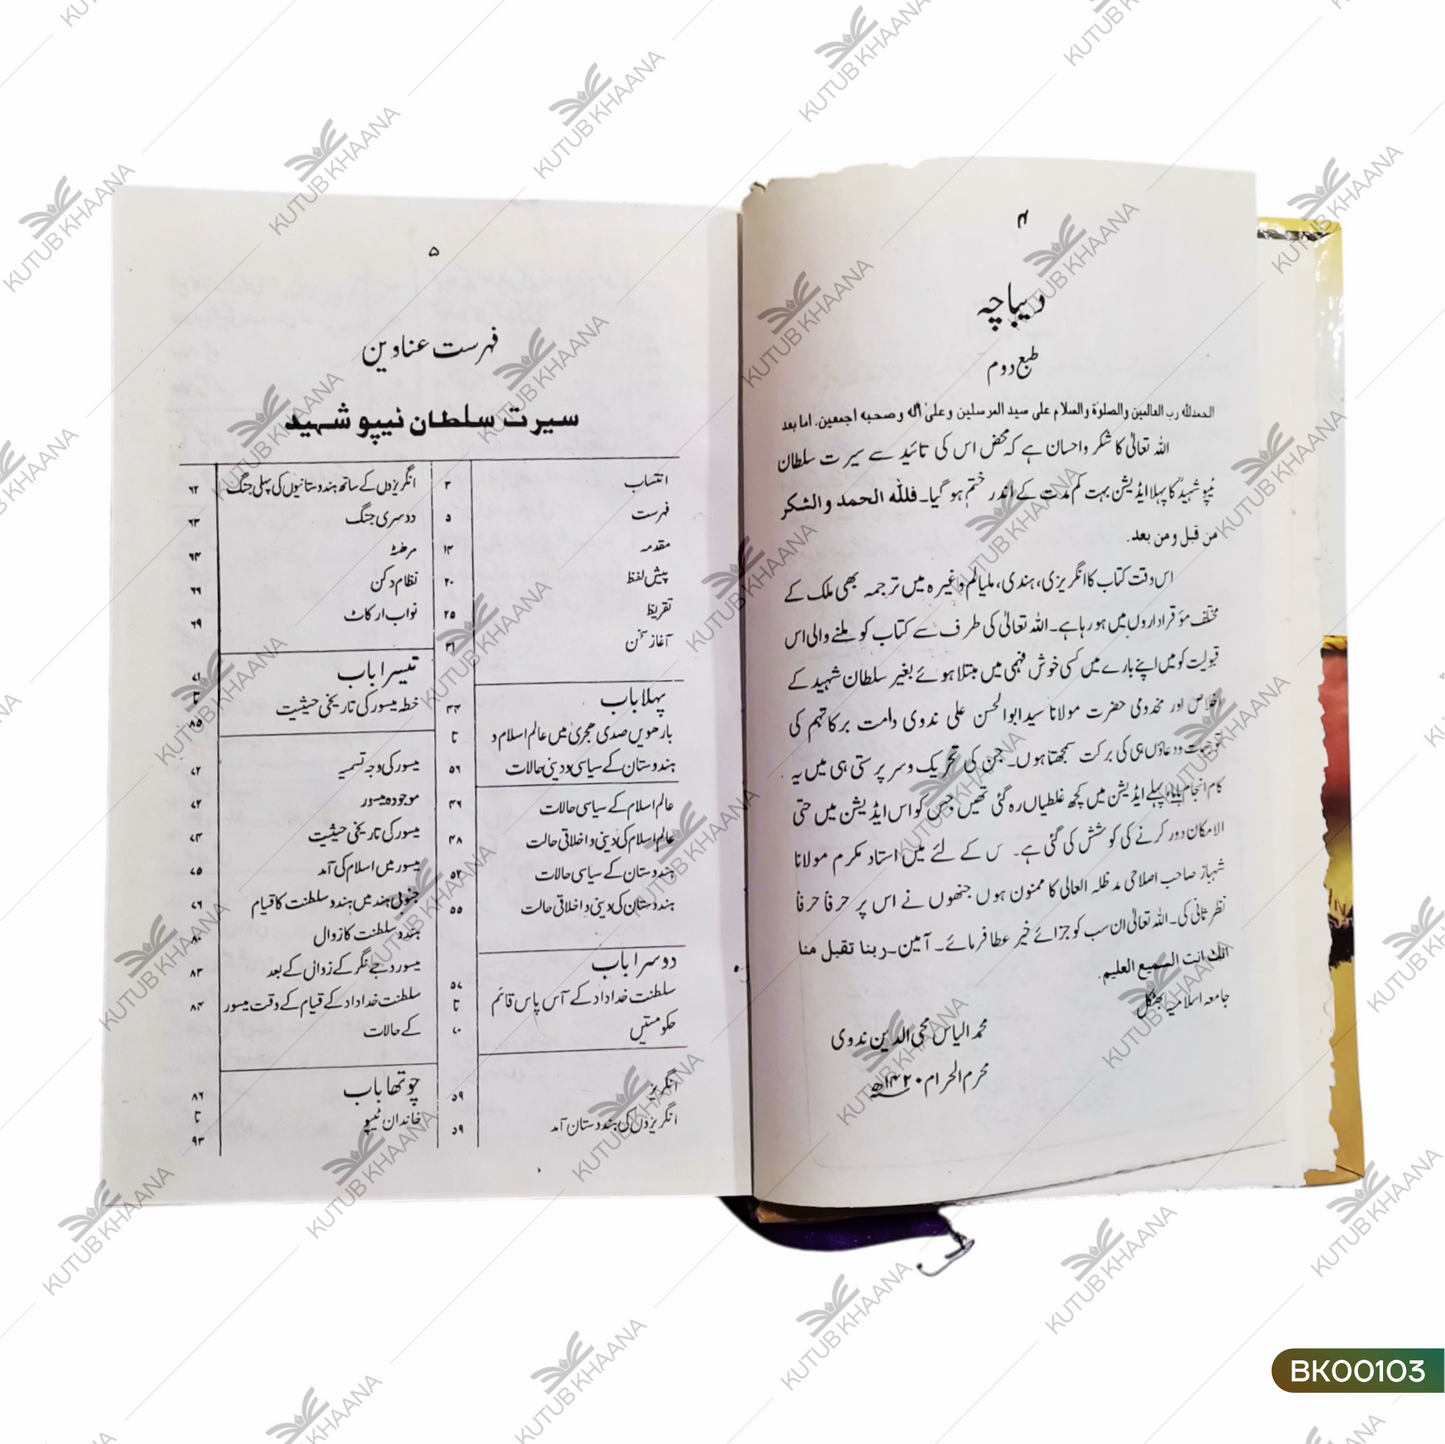 ۴
دیباچہ
طبع دوم
الحمدللہ رب العالمین والصلوٰۃ والسلام علی سید المرسلین وعلیٰ آلہ وصحبہ اجمعین. اما بعد
اللہ تعالیٰ کا شکر و احسان ہے کہ محض اس کی تائید سے سیرت سلطان
ٹیپو شہیدؒ کا پہلا ایڈیشن بہت کم مدت کے اندر ختم ہو گیا۔ فللّٰہ الحمد والشکر
من قبل ومن بعد۔
اس وقت کتاب کا انگریزی، ہندی، ملیالم وغیرہ میں ترجمہ بھی ملک کے
مختلف مؤقر اداروں میں ہو رہا ہے۔ اللہ تعالیٰ کی طرف سے کتاب کو ملنے والی اس
قبولیت کو میں اپنے بارے میں کسی خوش فہمی میں مبتلا ہوئے بغیر سلطان شہید کے
اخلاص اور مخدومی حضرت مولانا سید ابوالحسن علی ندوی دامت برکاتہم کی
توجہات و دعاؤں ہی کی برکت سمجھتا ہوں۔ جن کی تحریک و سرپرستی ہی میں یہ
کام انجام پایا پہلے ایڈیشن میں کچھ غلطیاں رہ گئی تھیں جس کو اس ایڈیشن میں حتی
الامکان دور کرنے کی کوشش کی گئی ہے۔ س کے لئے میں استاد مکرم مولانا
شہباز صاحب اصلاحی مدظلہ العالی کا ممنون ہوں جنھوں نے اس پر حرفاً حرفاً
نظر ثانی کی۔ اللہ تعالیٰ ان سب کو جزائے خیر عطا فرمائے۔ آمین۔ ربنا تقبل منا
انك انت السميع العليم.
جامعہ اسلامیہ بھٹکل
محمد الیاس محی الدین ندوی
محرم الحرام ۱۴۲۰ھ
۵
فہرست عناوین
سیرت سلطان ٹیپو شہید
انتساب ۳
فہرست ۵
مقدمہ ۱۳
پیش لفظ ۲۰
تقریظ ۲۵
آغاز سخن ۳۱
پہلا باب
بارھویں صدی ہجری میں عالم اسلام و
ہندوستان کے سیاسی و دینی حالات
۴۴
تا
۵۶
عالم اسلام کے سیاسی حالات ۴۶
عالم اسلام کی دینی و اخلاقی حالت ۴۸
ہندوستان کے سیاسی حالات ۵۲
ہندوستان کی دینی و اخلاقی حالت ۵۵
دوسرا باب
سلطنت خداداد کے آس پاس قائم
حکومتیں
۵۷
تا
۷۰
انگریز ۵۹
انگریزوں کی ہندوستان آمد ۵۹
انگریزوں کے ساتھ ہندوستانیوں کی پہلی جنگ ۶۲
دوسری جنگ ۶۳
مرہٹے ۶۴
نظام دکن ۶۶
نواب ارکاٹ ۶۹
تیسرا باب
خطہ میسور کی تاریخی حیثیت
۷۱
تا
۸۵
میسور کی وجہ تسمیہ ۷۲
موجودہ میسور ۷۲
میسور کی تاریخی حیثیت ۷۴
میسور میں اسلام کی آمد ۷۵
جنوبی ہند میں ہندو سلطنت کا قیام ۷۶
ہندو سلطنت کا زوال ۸۰
میسور وجے نگر کے زوال کے بعد ۸۳
سلطنت خداداد کے قیام کے وقت میسور ۸۴
کے حالات
چوتھا باب
خاندان ٹیپو
۸۶
تا
۹۳
BK00103
KUTUB KHAANA